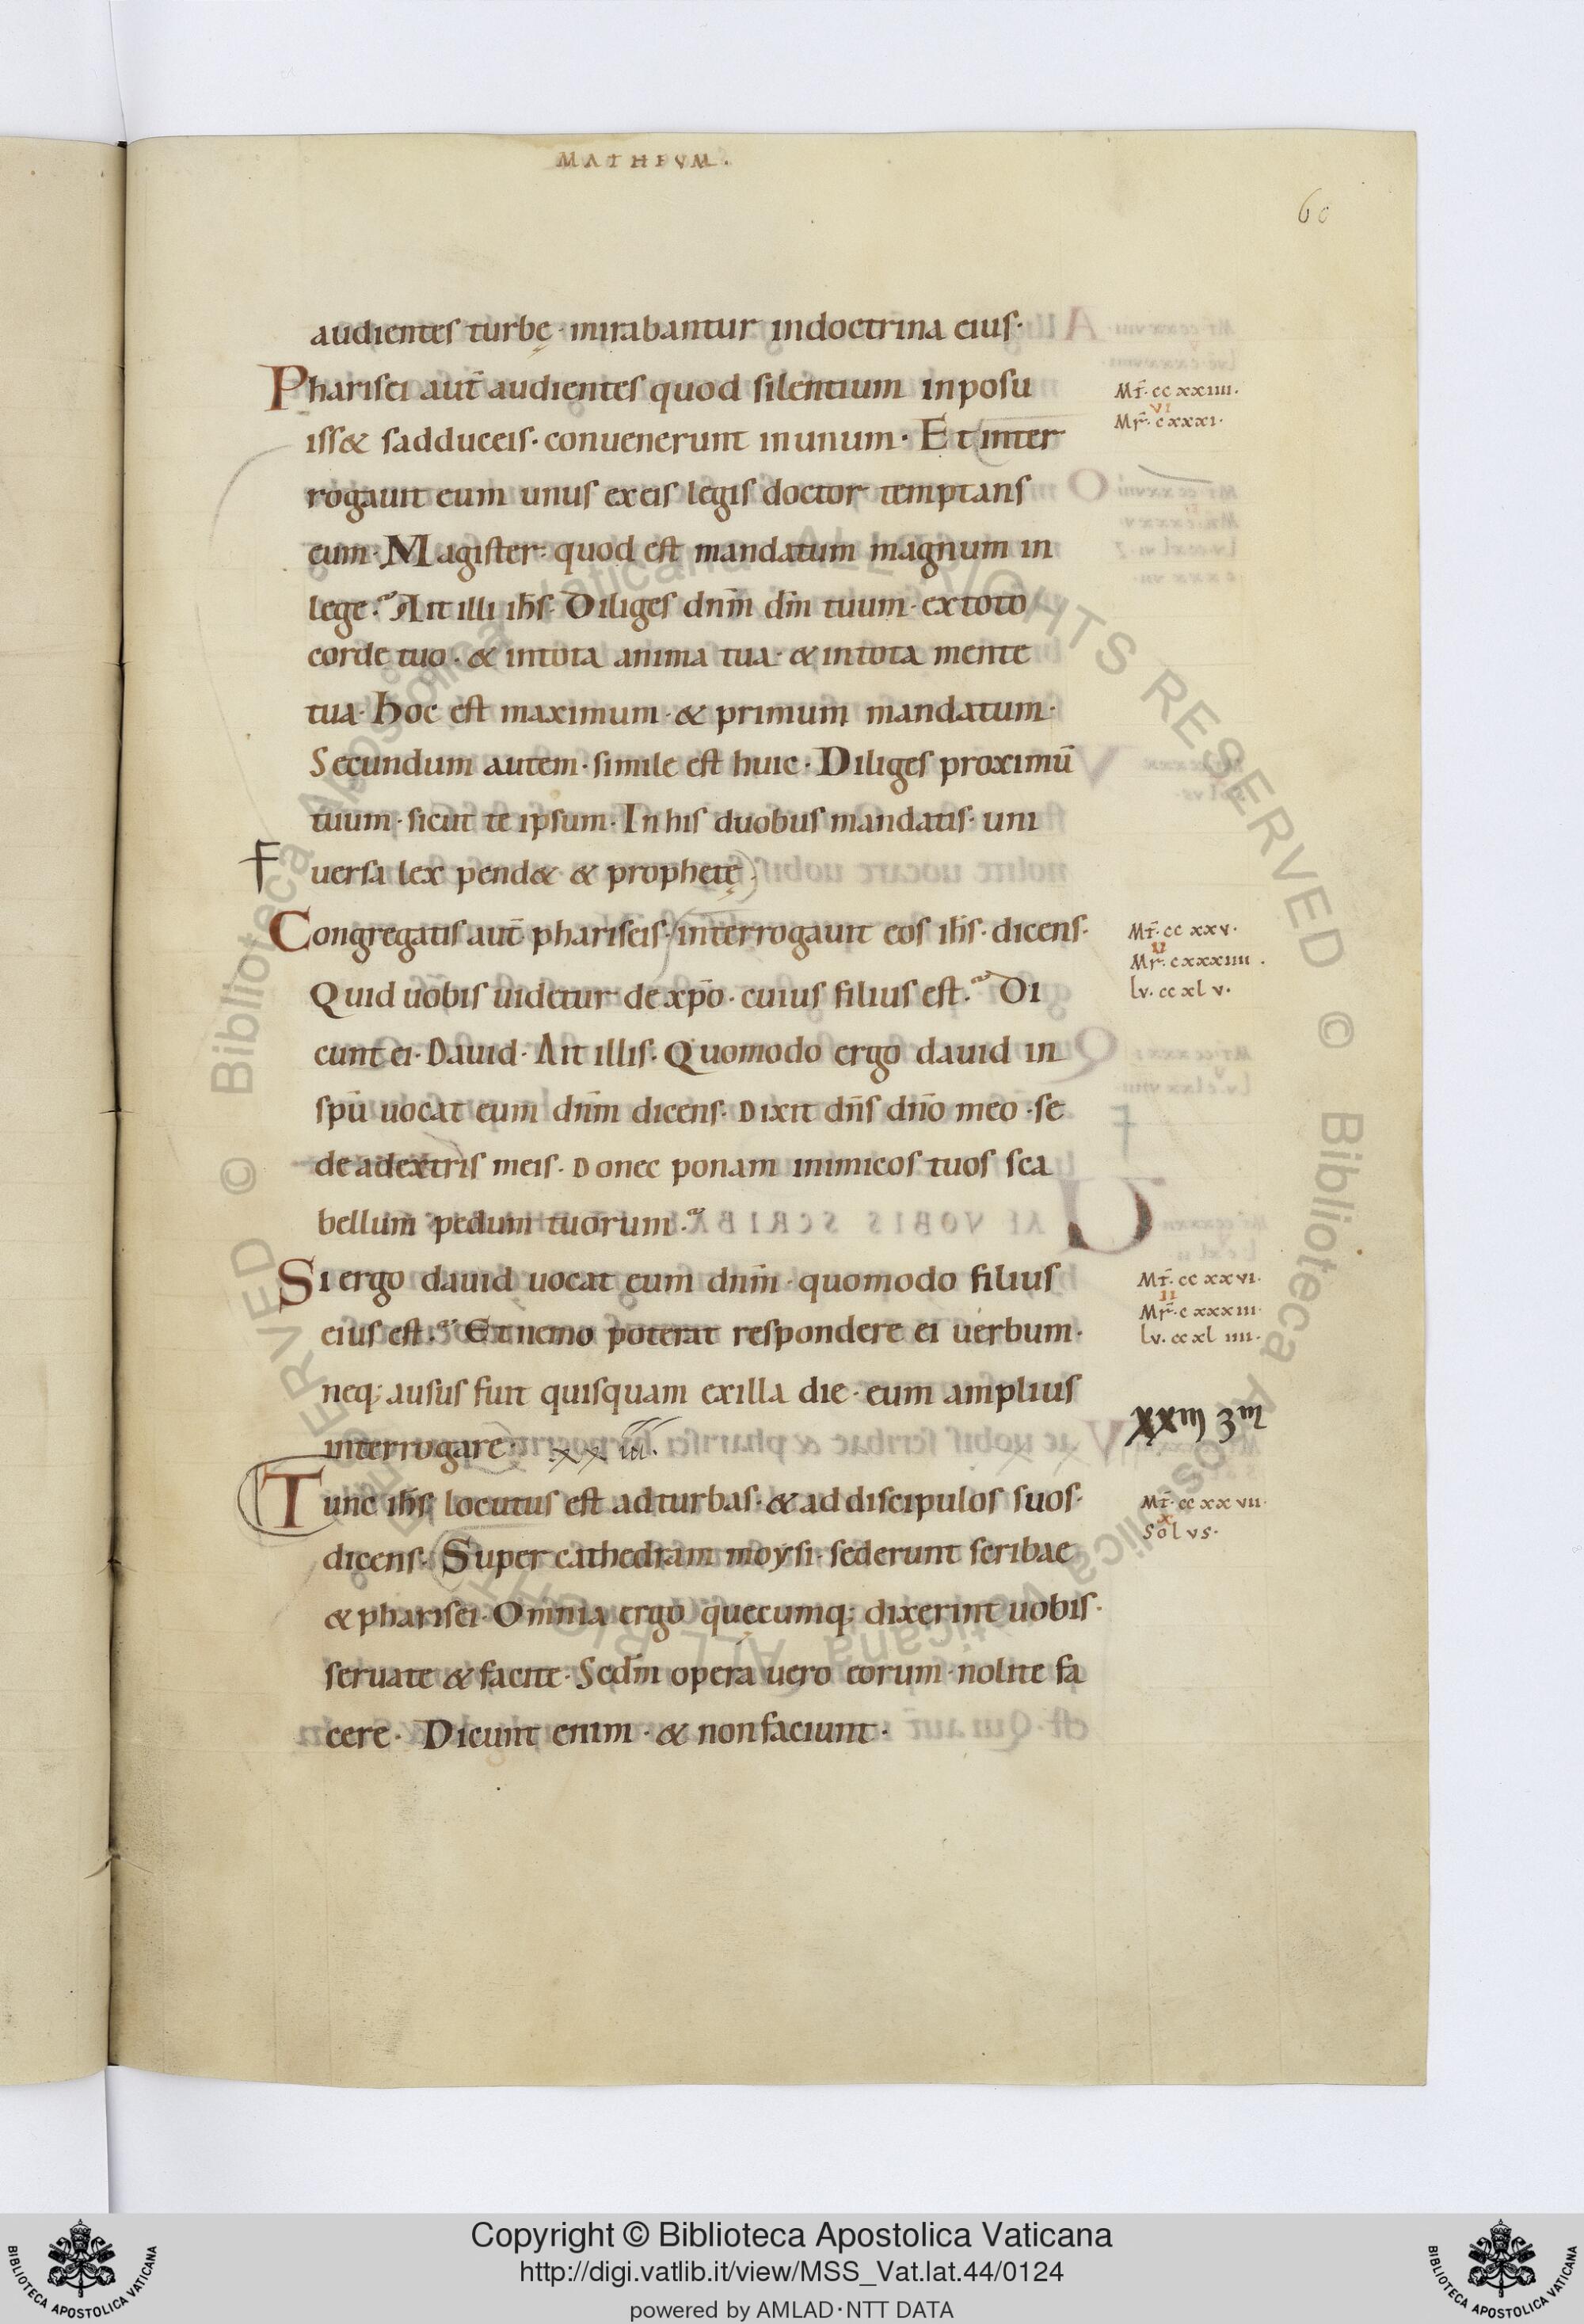 MATHEVM.
60
audientes turbę · mirabantur indoctrina eius·
Pharisei aut̄ audientes quod silentium inposu
Mt̄· cc xxiiii·
iss& sadduceis· conuenerunt inunum· Et inter
vi
Mr̄· cxxxi·
rogauit eum unus exeis legis doctor temptans
eum· Magister· quod est mandatum magnum in
lege· Ait illi ih̄s· Diliges dnm̄ dm̄ tuum· extoto
corde tuo · & intota anima tua· & intota mente
tua· Hoc est maximum· & primum mandatum·
Secundum autem· simile est huic· Diliges proximū
tuum· sicut te ipsum· In his duobus mandatis· uni
f uersa lex pend& & prophetę
Congregatis aut̄ phariseis· interrogauit eos ih̄s· dicens·
Mt̄· cc xxv·
ii
Mr̄· cxxxiiii·
Quid uobis uidetur de xp̄o· cuius filius est· Di
lv· cc xl v·
cunt ei· Dauid· Ait illis· Quomodo ergo dauid in
spū uocat eum dnm̄ dicens· Dixit dn̄s dn̄o meo· se
de adextris meis· Donec ponam inimicos tuos sca
bellum pedum tuorum·
Si ergo dauid uocat eum dnm̄· quomodo filius
Mt̄· cc xxvi·
ii
Mr̄· c xxxiii·
eius est· Et nemo poterat respondere ei uerbum·
lv· cc xl iiii·
neq; ausus fuit quisquam exilla die· eum amplius
xxiij 3m
interrogare· xx iii·
Tunc ih̄s locutus est adturbas· & ad discipulos suos·
Mt̄· cc xx vii·
x
Solvs·
dicens· Super cathedram moysi· sederunt scribae
& pharisei· Omnia ergo quęcumq; dixerint uobis·
seruate & facite· Scdm̄ opera uero eorum· nolite fa
cere· Dicunt enim· & nonfaciunt·
© Biblioteca Apostolica Vaticana ALL RIGHTS RESERVED
Copyright © Biblioteca Apostolica Vaticana
http://digi.vatlib.it/view/MSS_Vat.lat.44/0124
powered by AMLAD·NTT DATA
BIBLIOTECA APOSTOLICA VATICANA
BIBLIOTECA APOSTOLICA VATICANA